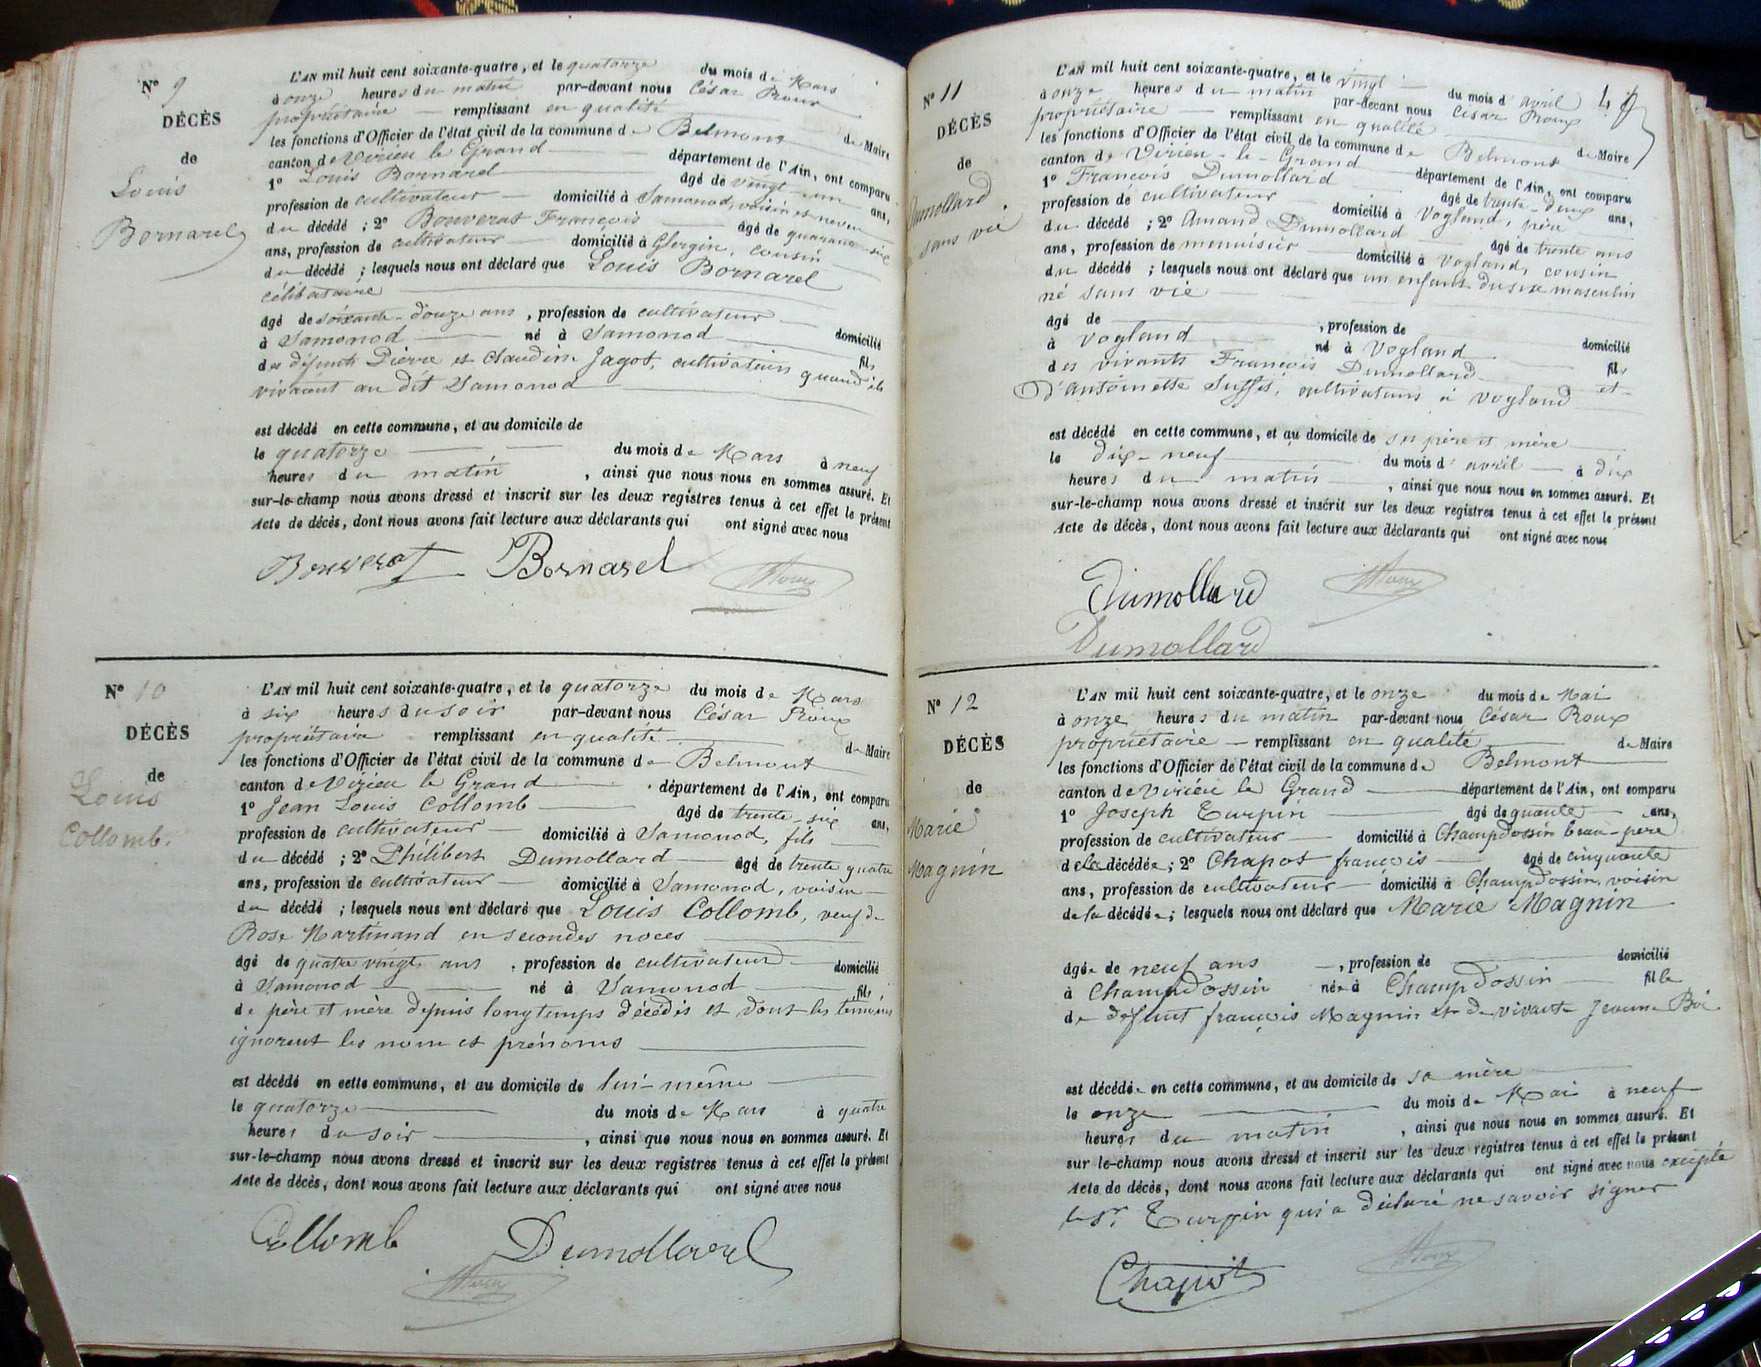 Nº 9
DÉCÈS
de
Louis
Bornarel
L'AN mil huit cent soixante-quatre, et le quatorze du mois de Mars
à onze heures du matin par-devant nous César Roux
propriétaire remplissant en qualité de Maire
les fonctions d'Officier de l'état civil de la commune de Belmont
canton de Virieu le Grand département de l'Ain, ont comparu
1º Louis Bornarel âgé de vingt-un ans,
profession de cultivateur domicilié à Samonod, voisin et neveu
du décédé ; 2º Bouverat François âgé de quarante-six
ans, profession de cultivateur domicilié à cousin
du décédé ; lesquels nous ont déclaré que Louis Bornarel
célibataire
âgé de soixante-douze ans, profession de cultivateur domicilié
à Samonod né à Samonod fils
des défunts Pierre et Claudine Jagot, cultivateurs quand ils
vivaient au dit Samonod
est décédé en cette commune, et au domicile de
le quatorze du mois de Mars à neuf
heures du matin, ainsi que nous nous en sommes assuré. Et
sur-le-champ nous avons dressé et inscrit sur les deux registres tenus à cet effet le présent
Acte de décès, dont nous avons fait lecture aux déclarants qui ont signé avec nous
Bouverat Bornarel Roux
Nº 10
DÉCÈS
de
Louis
Collomb.
L'AN mil huit cent soixante-quatre, et le quatorze du mois de Mars
à six heures du soir par-devant nous César Roux
propriétaire remplissant en qualité de Maire
les fonctions d'Officier de l'état civil de la commune de Belmont
canton de Virieu le Grand département de l'Ain, ont comparu
1º Jean Louis Collomb âgé de trente-six ans,
profession de cultivateur domicilié à Samonod, fils
du décédé ; 2º Philibert Dumollard âgé de trente quatre
ans, profession de cultivateur domicilié à Samonod, voisin
du décédé ; lesquels nous ont déclaré que Louis Collomb, veuf de
Rose Martinand en secondes noces
âgé de quatre vingts ans, profession de cultivateur domicilié
à Samonod né à Samonod fils
de père et mère depuis longtemps décédés et dont les témoins
ignorent les nom et prénoms
est décédé en cette commune, et au domicile de lui-même
le quatorze du mois de Mars à quatre
heures du soir, ainsi que nous nous en sommes assuré. Et
sur-le-champ nous avons dressé et inscrit sur les deux registres tenus à cet effet le présent
Acte de décès, dont nous avons fait lecture aux déclarants qui ont signé avec nous
Collomb Dumollard
Roux
Nº 11
DÉCÈS
de
Dumollard
sans vie
L'AN mil huit cent soixante-quatre, et le vingt du mois d'avril
à onze heures du matin par-devant nous César Roux
propriétaire remplissant en qualité de Maire
les fonctions d'Officier de l'état civil de la commune de Belmont
canton de Virieu-le-Grand département de l'Ain, ont comparu
1º François Dumollard âgé de trente-deux ans,
profession de cultivateur domicilié à Vogland, père
du décédé ; 2º Amand Dumollard âgé de trente ans
ans, profession de menuisier domicilié à Vogland, cousin
du décédé ; lesquels nous ont déclaré que un enfant du sexe masculin
né sans vie
âgé de , profession de domicilié
à Vogland né à Vogland fils
des vivants François Dumollard et
D'Antoinette Suffet, cultivateurs à Vogland
est décédé en cette commune, et au domicile de ses père et mère
le dix-neuf du mois d'avril à dix
heures du matin, ainsi que nous nous en sommes assuré. Et
sur-le-champ nous avons dressé et inscrit sur les deux registres tenus à cet effet le présent
Acte de décès, dont nous avons fait lecture aux déclarants qui ont signé avec nous
Dumollard Roux
Dumollard
Nº 12
DÉCÈS
de
Marie
Magnin
L'AN mil huit cent soixante-quatre, et le onze du mois de Mai
à onze heures du matin par-devant nous César Roux
propriétaire remplissant en qualité de Maire
les fonctions d'Officier de l'état civil de la commune de Belmont
canton de Virieu le Grand département de l'Ain, ont comparu
1º Joseph Turpin âgé de ans,
profession de cultivateur domicilié à Champdossin beau-père
de la décédée ; 2º Chapot françois âgé de cinquante
ans, profession de cultivateur domicilié à Champdossin, voisin
de la décédée ; lesquels nous ont déclaré que Marie Magnin
âgée de neuf ans, profession de domicilié
à Champdossin née à Champdossin fille
de défunt françois Magnin et de vivante Jeanne
est décédée en cette commune, et au domicile de sa mère
le onze du mois de Mai à neuf
heures du matin, ainsi que nous nous en sommes assuré. Et
sur le-champ nous avons dressé et inscrit sur les deux registres tenus à cet effet le présent
Acte de décès, dont nous avons fait lecture aux déclarants qui ont signé avec nous excepté
le Sr. Turpin qui a déclaré ne savoir signer
Chapot Roux